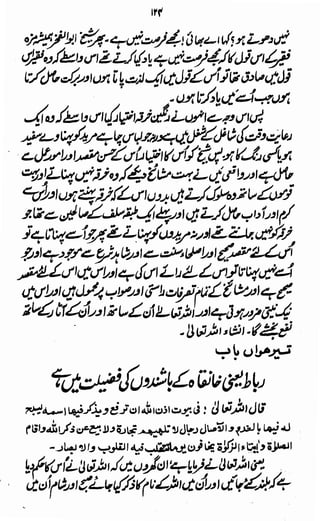 ۱۲۴
نہیں دھوتے ہو؟ کہا اے بھائی! مجھے فرصت نہیں ہے۔ پھر شیخ ابو الفخر ہمیشہ مزہ
فقیر کے اس قول کا کہ مجھے فرصت نہیں ہے یاد کیا کرتے تھے اس واسطے کہ وہ فقیر اس
قول میں صادق تھا تو اُس کے قول میں ایک لذت پاتا ہوں اور برکت حاصل کرتا
ہوں جب اُسے میں یاد کرتا ہوں۔
پس اس وجہ سے انھوں نے رنگین خرقہ اختیار کیا اس واسطے کہ وہ ایک
رعایت وقت کی شاغل کے شغل میں ہے ورنہ جو لباس چاہے مرید کو پہنا دے سفید
ہو یا کسی رنگ کا ہو پس شیخ کو اُس کا اختیار اُس کے حسن مقصد اور وفور علم سے
حاصل ہے اور واقعی میں نے بہت مشائخ دیکھے جو کہ وہ خرقہ نہیں پہناتے اور بہت
قوموں کے ساتھ وہ سلوک کرتے ہیں بدوں اس کے کہ خرقہ پہنتے ہوں اور اُس سے
علوم اور آداب حاصل کرتے ہیں اور پہلے ایک طبقہ سلف کے صالحین سے تھا جو
خرقہ کو نہیں جانتے تھے اور نہ مریدوں کو پہناتے تھے پھر جو اُسے پہناتا ہے تو
اُس کے لئے مقصد صحیح اور اصل سنت سے اور شاہد شرع سے موجود ہے اور جو
اُسے نہیں پہناتا تو اس کے لئے رائے اس کی ہے اور اس میں اُس کے لئے مقصد
صحیح ہے اور مشائخ کے تمام تصرفات راستی اور صواب پر محمول ہیں اور اس میں
نیک نیتی ضرور ہوتی ہے اور اللہ تعالیٰ اُن کے ساتھ اور اُن کے آثار کے ساتھ
نفع بخشے گا۔ انشاء اللہ تعالیٰ۔
تیرھواں باب
رباط یعنی خانقاہ کے باشندوں کی فضیلت میں ہے
قال اللہ تعالیٰ: فی بیوت اذن اللہ ان ترفع و یذکر فیھا اسمہ یسبح
لہ فیھا بالغدو و الآصال رجال لا تلھیھم تجارۃ ولا بیع عن ذکر اللہ و اقام
الصلوٰۃ و ایتاء الزکوٰۃ یخافون یوما تتقلب فیہ القلوب والابصار۔
یعنی اللہ تعالیٰ نے فرمایا ہے: ان گھروں میں کہ اللہ تعالیٰ نے اُس کا حکم دیا
ہے کہ بلند کئے جائیں اور اُن میں اللہ کے نام کا ذکر کیا جائے صبح اور شام اُن میں